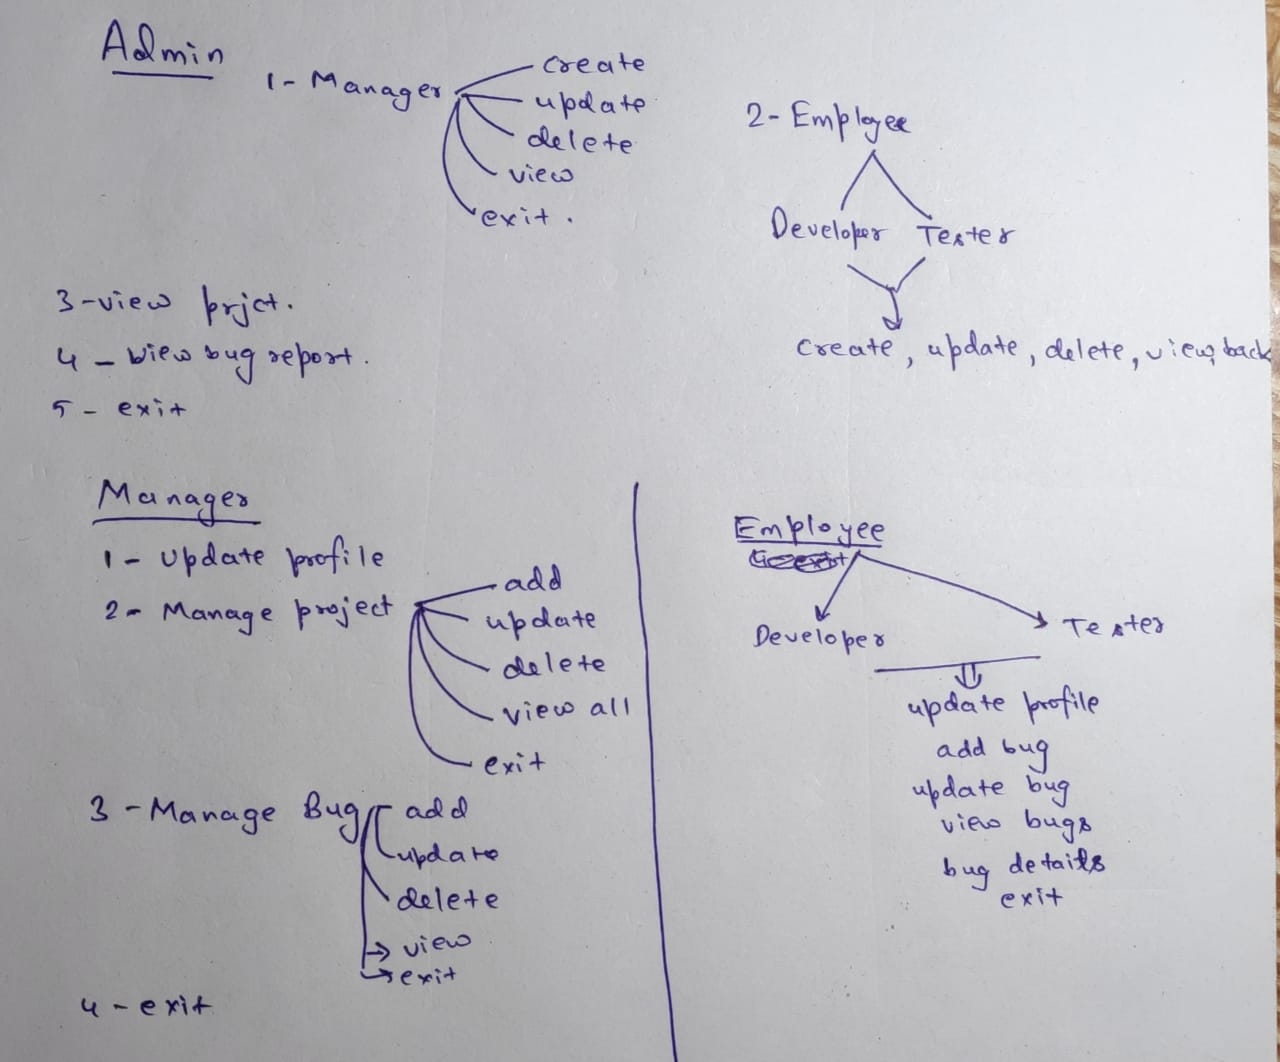 Admin
1- Manager
create
update
delete
view
exit.
2- Employee
Developer Tester
create, update, delete, view, back
3-view prjct.
4 - view bug report.
5 - exit
Manager
1- Update profile
2- Manage project
add
update
delete
view all
exit
3 - Manage Bug
add
update
delete
view
exit
4 - exit
Employee
Developer Tester
update profile
add bug
update bug
view bugs
bug details
exit